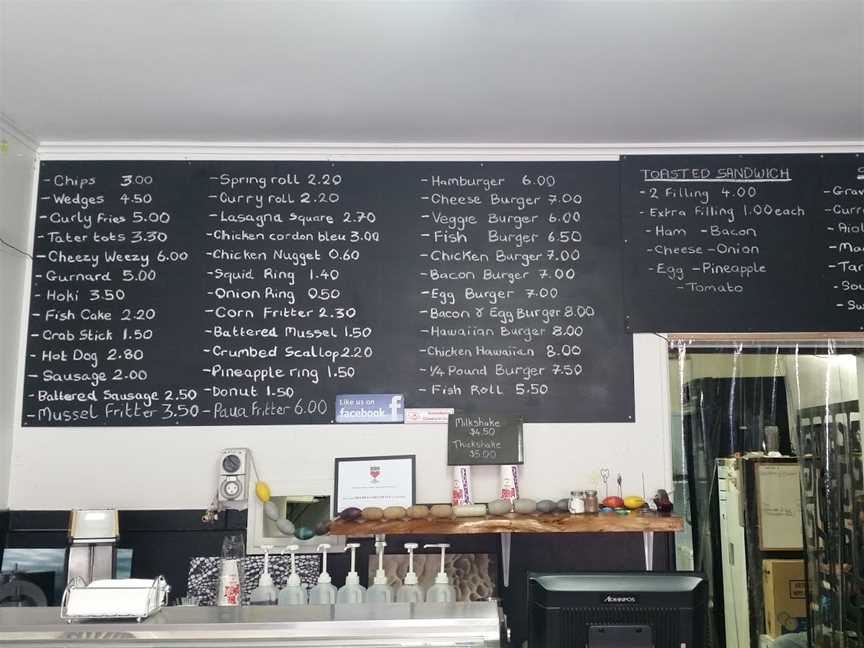 - Chips 3.00
- Wedges 4.50
- Curly Fries 5.00
- Tater tots 3.30
- Cheezy Weezy 6.00
- Gurnard 5.00
- Hoki 3.50
- Fish Cake 2.20
- Crab Stick 1.50
- Hot Dog 2.80
- Sausage 2.00
- Battered Sausage 2.50
- Mussel Fritter 3.50
- Spring roll 2.20
- Curry roll 2.20
- Lasagna Square 2.70
- Chicken cordon bleu 3.00
- Chicken Nugget 0.60
- Squid Ring 1.40
- Onion Ring 0.50
- Corn Fritter 2.30
- Battered Mussel 1.50
- Crumbed Scallop 2.20
- Pineapple ring 1.50
- Donut 1.50
- Paua Fritter 6.00
- Hamburger 6.00
- Cheese Burger 7.00
- Veggie Burger 6.00
- Fish Burger 6.50
- Chicken Burger 7.00
- Bacon Burger 7.00
- Egg Burger 7.00
- Bacon & Egg Burger 8.00
- Hawaiian Burger 8.00
- Chicken Hawaiian 8.00
- 1/4 Pound Burger 7.50
- Fish Roll 5.50
TOASTED SANDWICH
- 2 Filling 4.00
- Extra Filling 1.00 each
- Ham - Bacon
- Cheese - Onion
- Egg - Pineapple
- Tomato
Like us on
facebook.
Milkshake
$4.50
Thickshake
$5.00
ADVANPOS